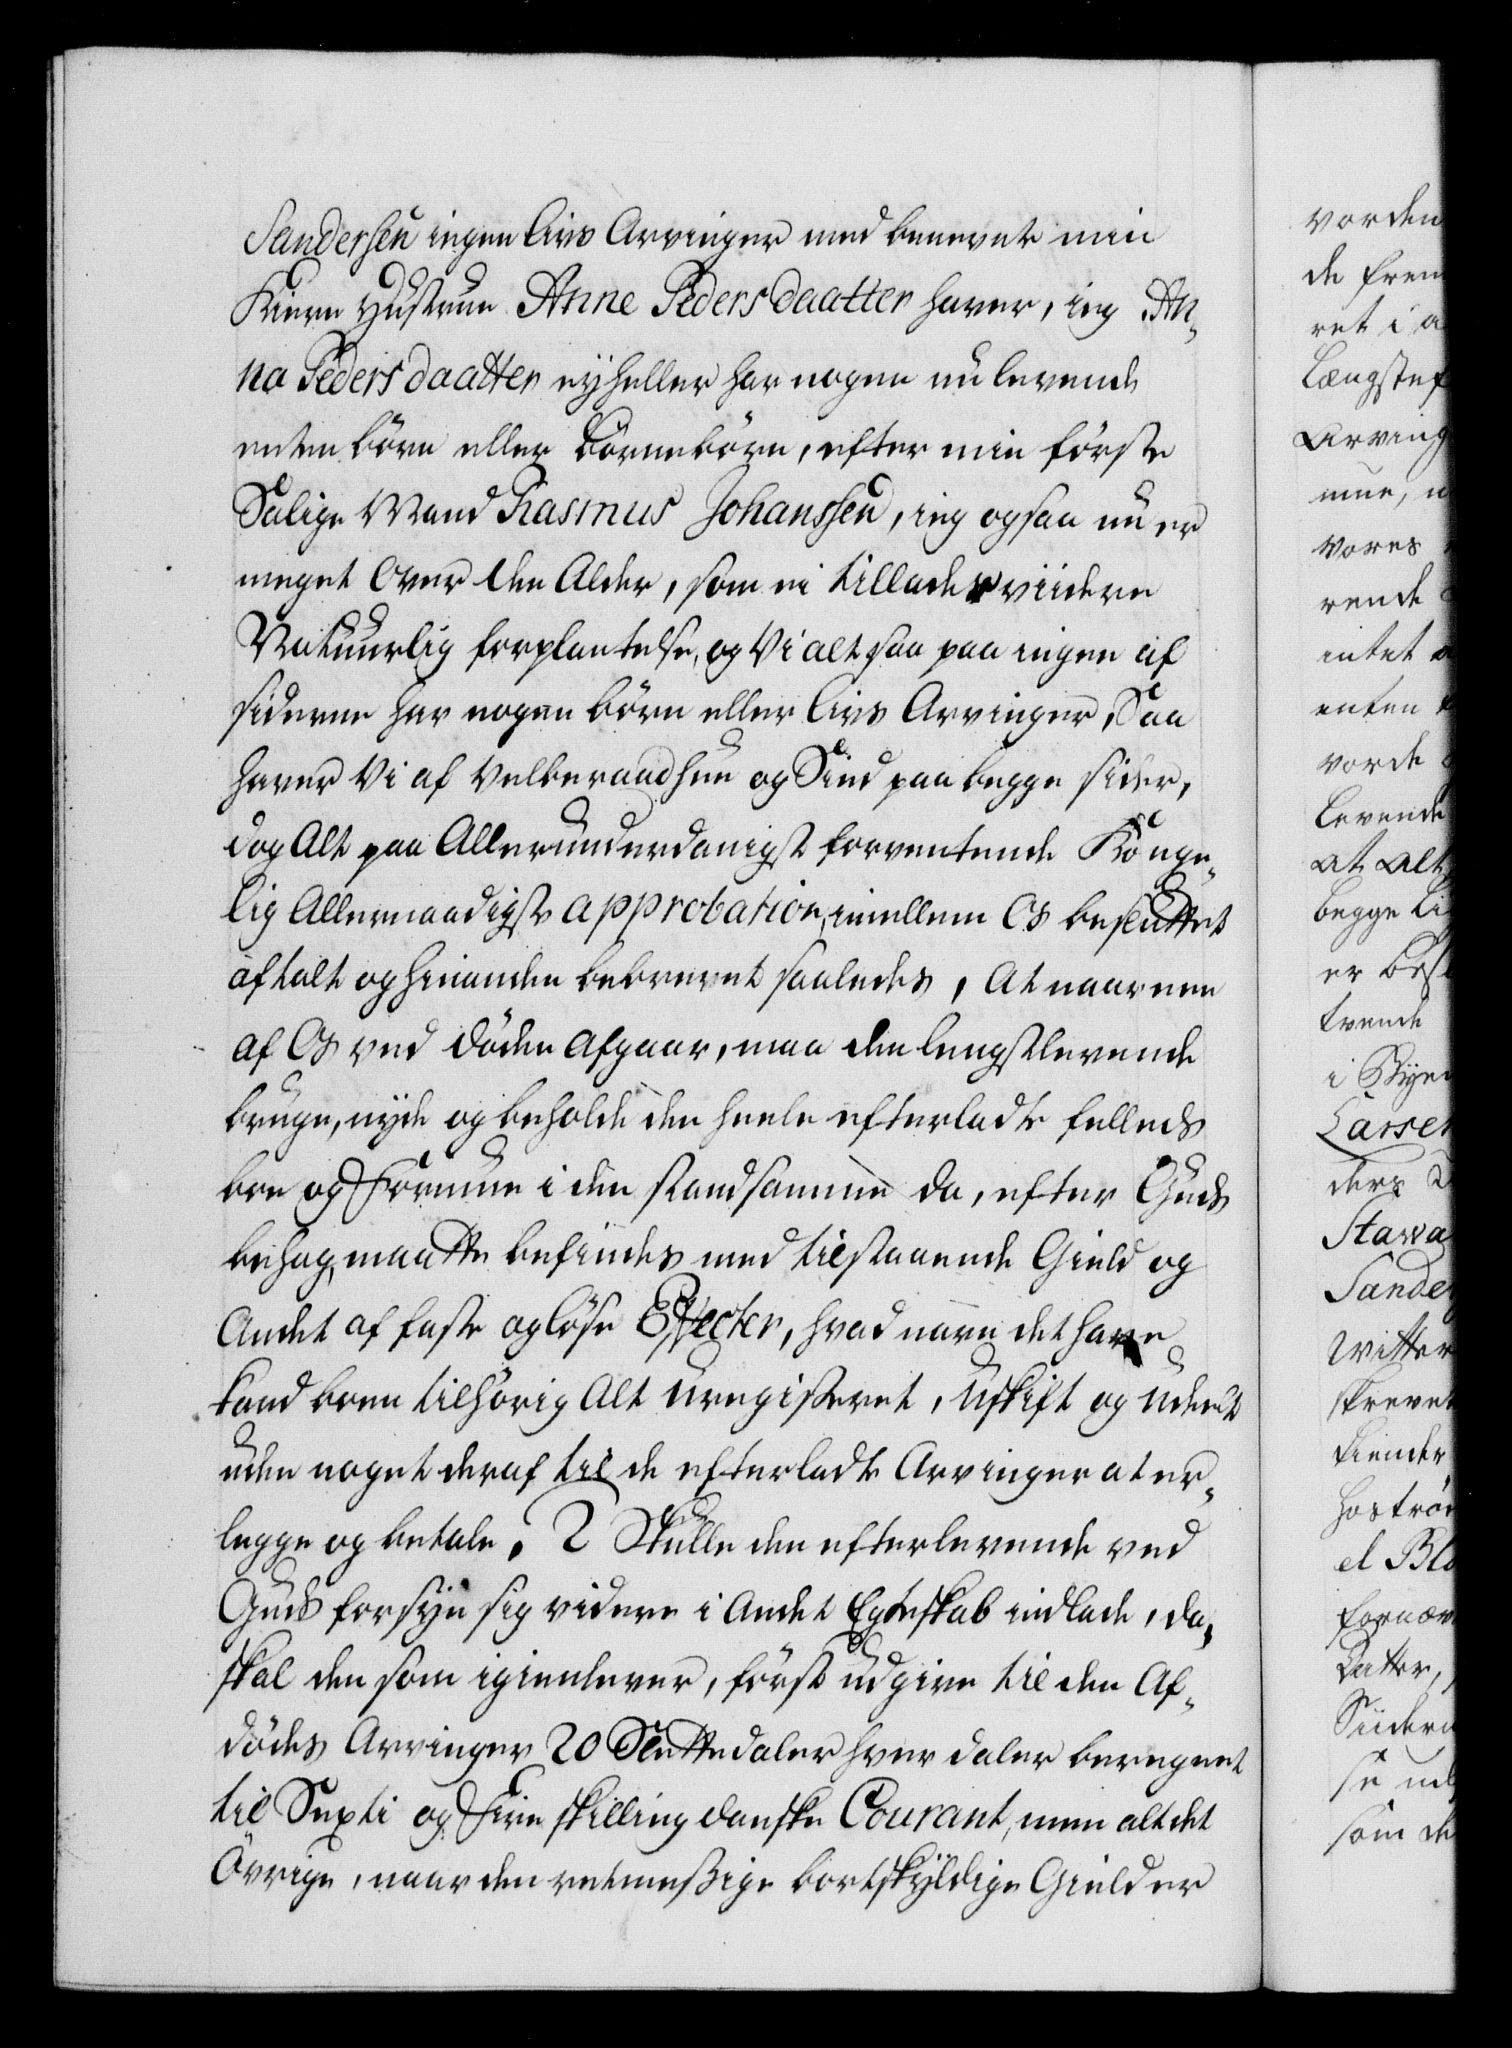 Sandersen ingen Livs Arvinger med benevnte min
Kiere Hustrue Anne Pedersdaatter haver, ieg An-
na Pedersdaatter ey heller har nogen nu levende
enten börn eller börnebörn, efter min förste
Salige Mand Rasmus Johanssen, ieg ogsaa nu er
meget Over den Alder, som ei tillader viidere
Natuurlig forplantelse, og Vi altsaa paa ingen af
siderne har nogen börn eller Livs Arvinger, Saa
haver Vi af Velberaad hue og Sind paa begge sider,
dog Alt paa Allerunderdanigst forventende Konge-
lig Allernaadigste approbation, imellem Os besluttet
aftalt og hinanden bebrevet saaledes, At naar een
af Os ved döden afgaar, maa den lengstlevende
bruge, nyde og beholde den heele efterladte fælleds
boe og Formue i den stand samme da, efter Guds
behag, maatte befindes med tilstaaende Gield og
Andet af faste og löse Effecter, hvad navn det have
kand boen tilhörig Alt uregistreret, Uskift og udeelt
uden noget deraf til de efterladte Arvinger at er-
legge og betale. 2 Skulle den efterlevende ved
Guds forsyn sig videre i Andet Egteskab indlade, da
skal den som igienlever, först udgive til den Af-
dödes Arvinger 20 Slettedaler hver daler beregnet
til Sexti og Fire skilling danske Courant, men alt det
Övrige, naar den retmessige bortskyldige Gield er
vorden
de frem
ret i a
Længstef
Arving
mue, u
vores
rende
intet
enten
vorde
levende
at alt
begge Li
er best
tvende
i Byen
Larsen
ders
Stava
Sander
Witter
skrevet
kiender
hoströ
el Blo
fornæv
Datter,
Siidern
se ud
som de